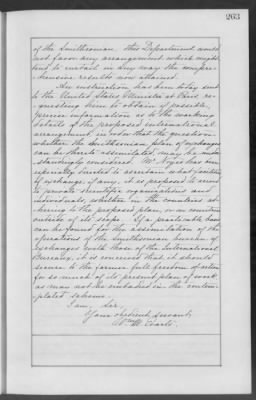 263
of the Smithsonian, this Department would
not favor any arrangement which might
tend to curtail in any way the compre-
hensive results now attained.
An instruction has been to-day sent
to the United States Minister at Paris re-
questing him to obtain if possible,
precise information as to the working
details of the proposed international
arrangement, in order that the question
whether the Smithsonian plan of exchanges
can be thereto assimilated, may be under-
standingly considered. Mr Noyes has been
especially directed to ascertain what facilities
of exchange, if any, it is proposed to secure
to private scientific organizations and
individuals, whether in the countries ad-
hering to the proposed plan, or in countries
outside of its scope. If a practicable basis
can be found for the assimilation of the
operations of the Smithsonian bureau of
Exchanges with those of the International
Bureaus, it is conceived that it should
secure to the former full freedom of action
for so much of its present plan of work
as may not be embraced in the contem-
plated scheme.
I am, Sir,
Your obedient servant,
Wm. M. Evarts.